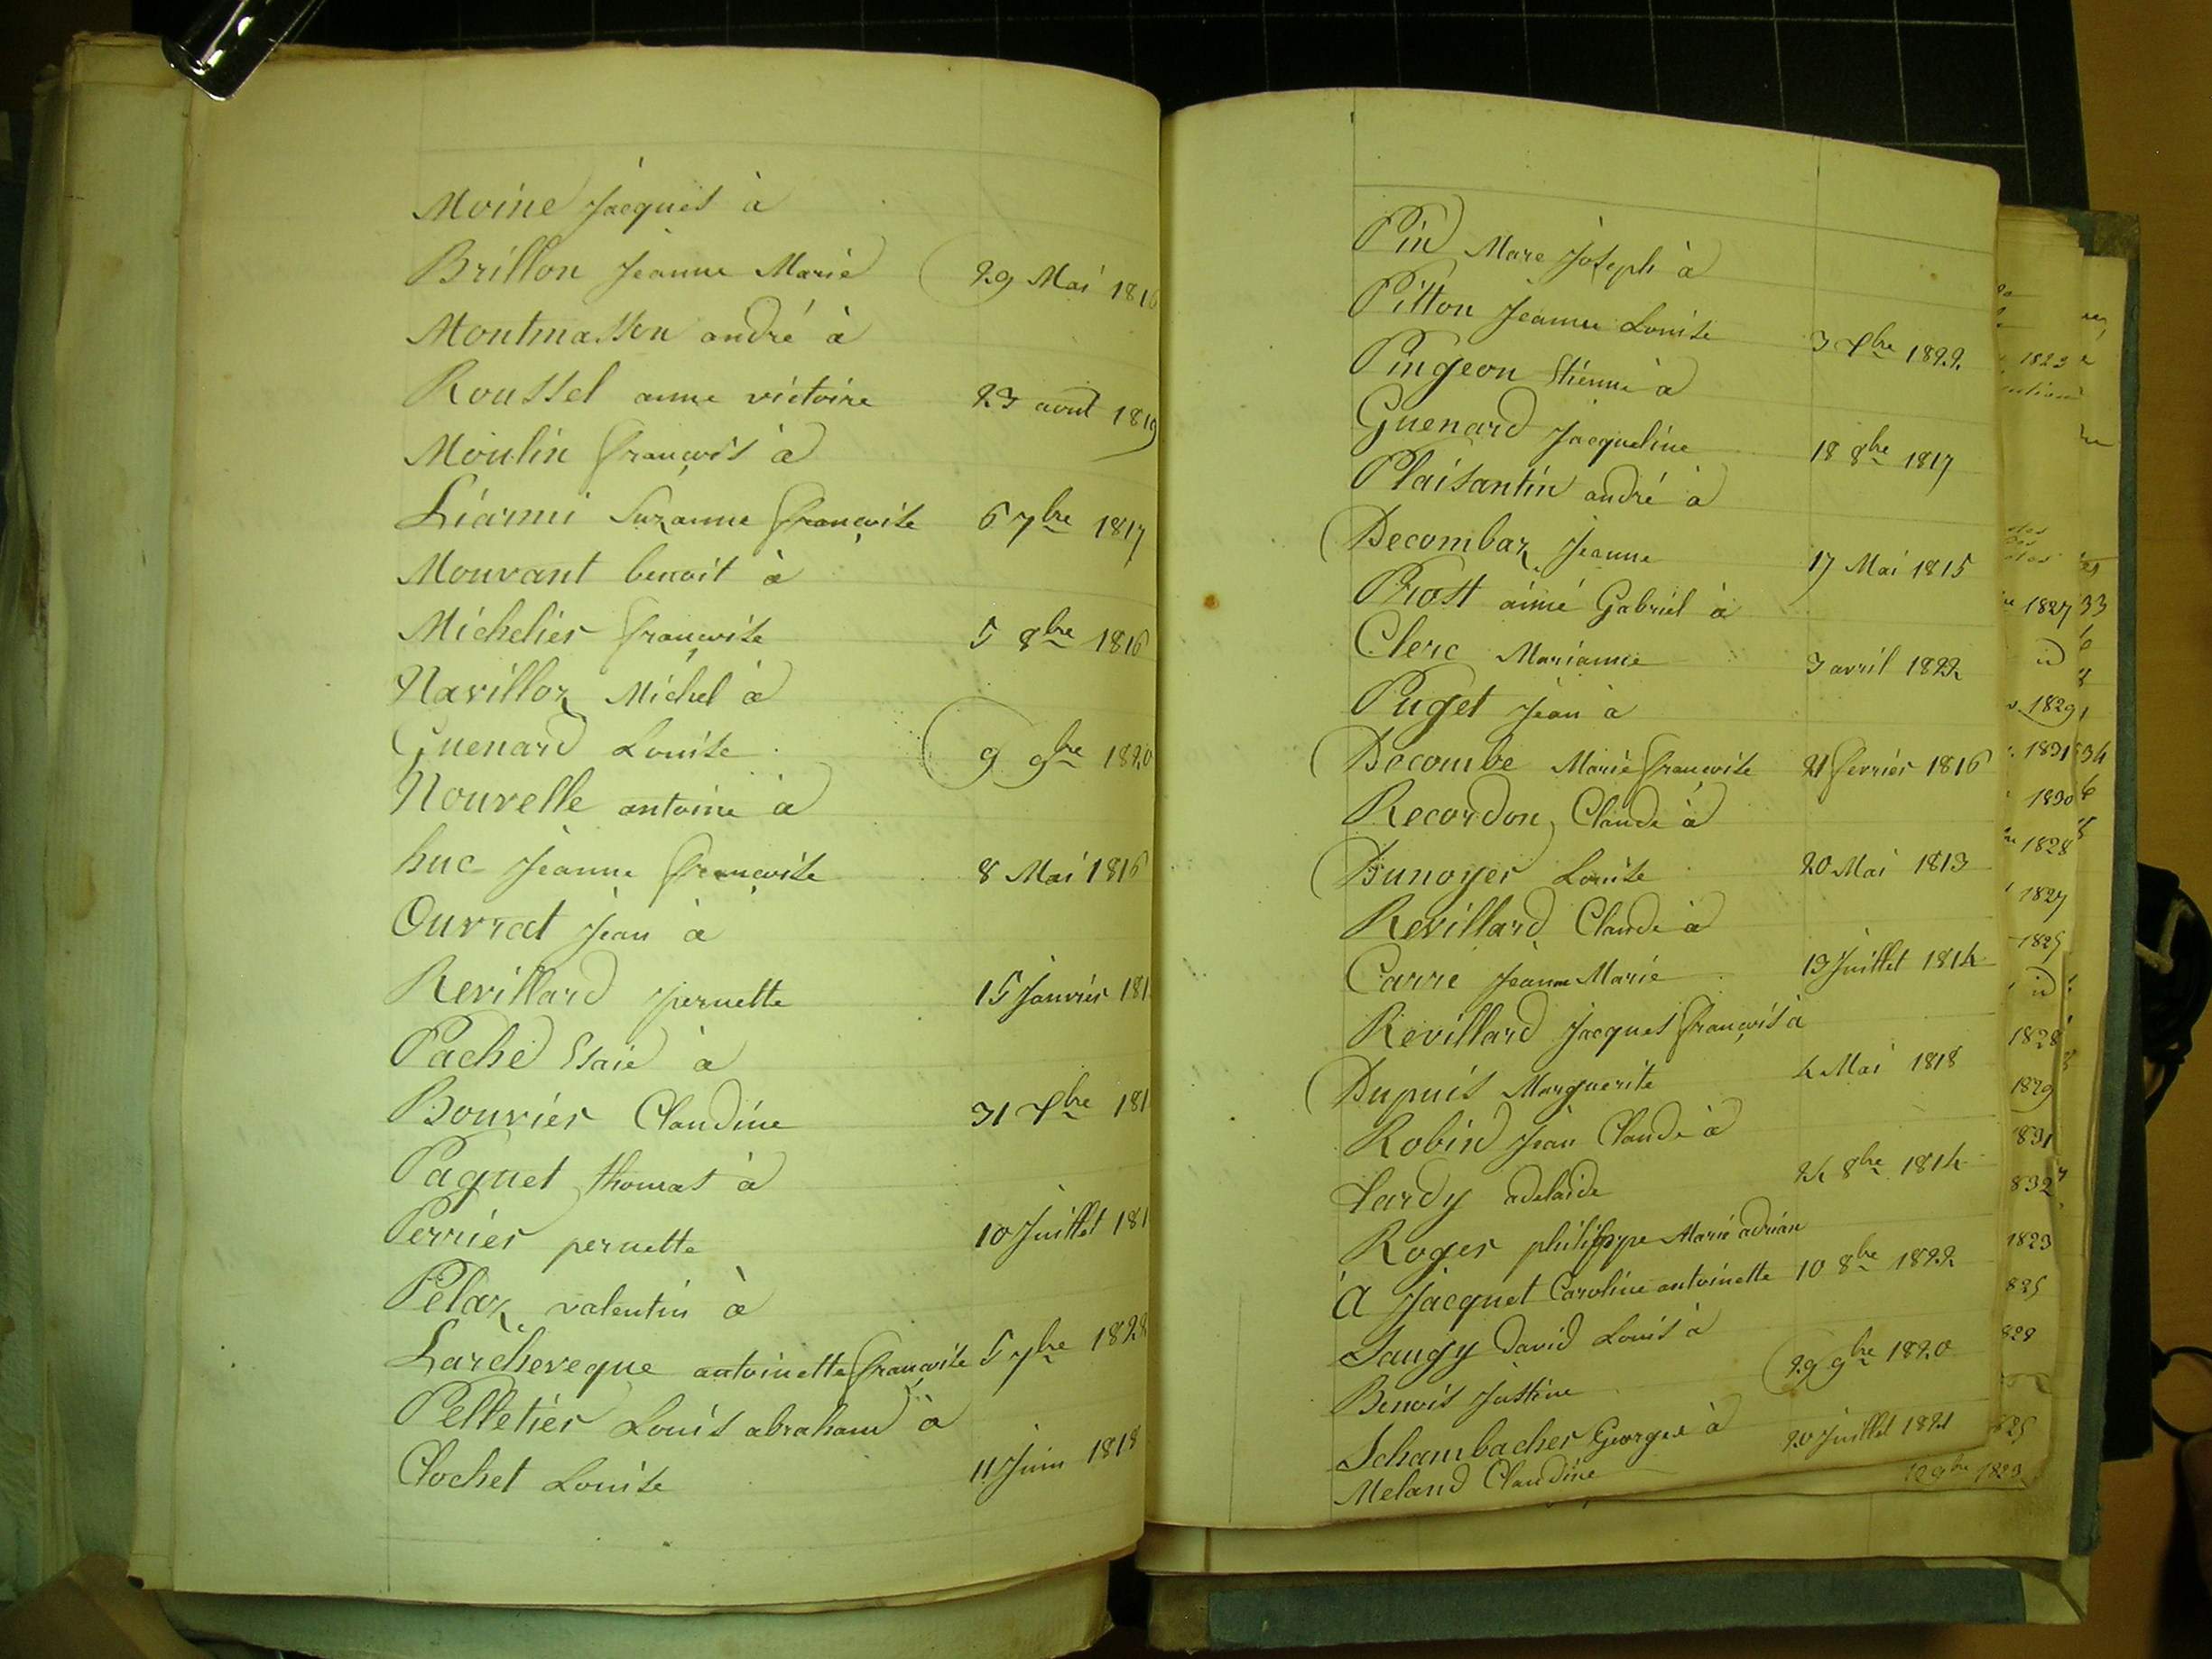 Moine Jacques à
Brillon Jeanne Marie 29 Mai 1816
Montmasson andré à
Roussel anne victoire 23 aout 1819
Moulin françois à
Liarmi Suzanne françoise 6 7bre 1817
Mouvant benoit à
Michelier françoise 5 8bre 1816
Navilloz Michel à
Guenard Louise 9 9bre 1820
Nouvelle antoine à
huc Jeanne françoise 8 Mai 1816
Ouvrat Jean à
Revillard pernette 15 Janvier 181
Pache Esaie à
Bouvier Claudine 31 Xbre 181
Paquet thomas à
Perrier pernette 10 Juillet 181
Pelaz valentin à
Larcheveque antoinette françoise 5 7bre 1828
Pelletier Louis abraham à
Clochet Louise 11 Juin 1818
Pin Marc Joseph à
Pitton Jeanne Louise 3 Xbre 1822
Pingeon Etienne à
Guenard Jacqueline 18 8bre 1817
Plaisantin andré à
Decombaz Jeanne 17 Mai 1815
Prost aimé Gabriel à
Clerc Marianne 3 avril 1822
Puget Jean à
Decombe Marie françoise 21 fevrier 1816
Recordon Claude à
Dunoyer Louise 20 Mai 1813
Revillard Claude à
Carre Jeanne Marie 13 Juillet 1814
Revillard Jacques françois à
Dupuis Marguerite 4 Mai 1818
Robin Jean Claude à
tardy adelaide 24 8bre 1814
Roger philippe Marie adrian
à Jacquet Caroline antoinette 10 8bre 1822
Saugy David Louis à
Benois Justine 29 9bre 1820
Schambacher George à
Meland Claudine 20 Juillet 1821
1823
1827
id
1829
1831
1830
1828
1827
1825
id
1828
1829
1831
832
1823
825
829
825
12 9bre 1823
33
34